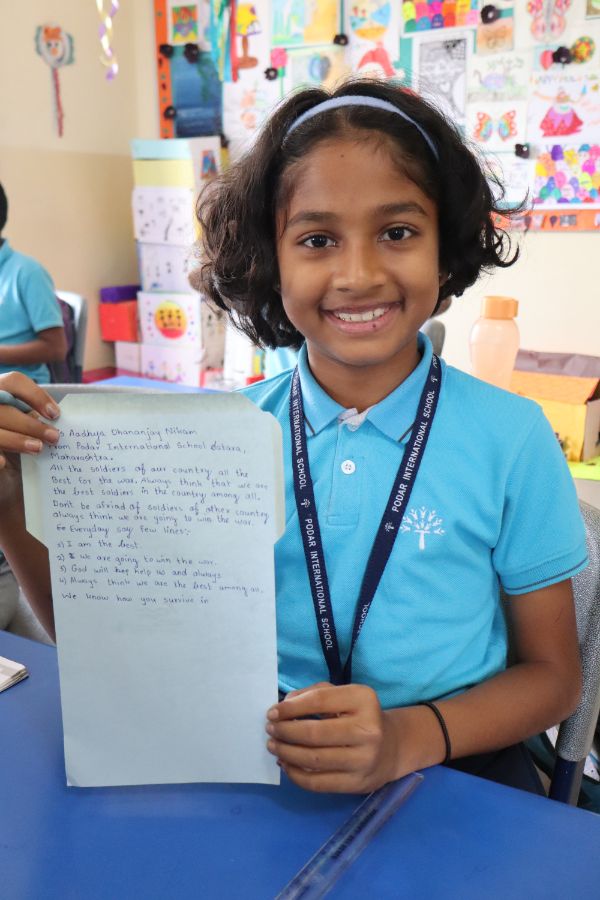 is Aadhya Dhananjay Nikam
from Podar International School Satara,
Maharashtra.
All the soldiers of our country all the
Best for the war. Always think that we are
the best soldiers in the country among all.
Don't be afriad of soldiers of other country
always think we are going to win the war.
Everyday say few lines:-
1) I am the best.
2) we are going to win the war.
3) God will help us and always
4) Always think we are the best among all.
We know how you survive in
PODAR INTERNATIONAL SCHOOL
PODAR INTERNATIONAL SCHOOL